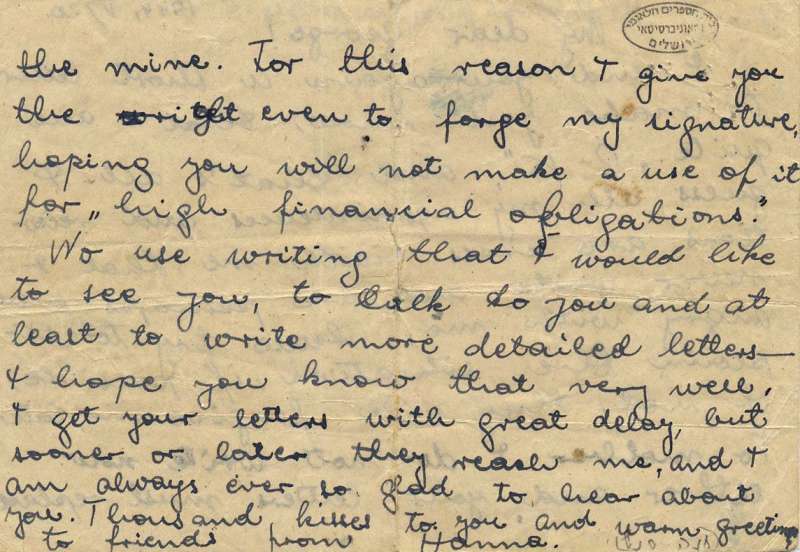 בית הספרים הלאומי
והאוניברסיטאי
ירושלים
the mine. For this reason I give you
the wright even to forge my signature,
hoping you will not make a use of it
for „high financial obligations."
No use writing that I would like
to see you, to talk to you and at
least to write more detailed letters—
I hope you know that very well.
I get your letters with great delay, but
sooner or later they reach me, and I
am always ever so glad to hear about
you. Thousand kisses to you and warm greetings
to friends from Hanna.